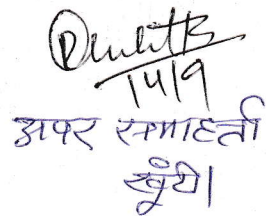 14/9
अपर समाहर्ता
खूँटी।